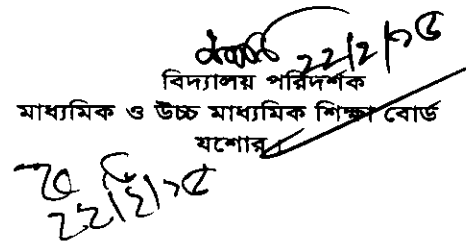 ২২/২/১৫
বিদ্যালয় পরিদর্শক
মাধ্যমিক ও উচ্চ মাধ্যমিক শিক্ষা বোর্ড
যশোর।
২২/২/১৫